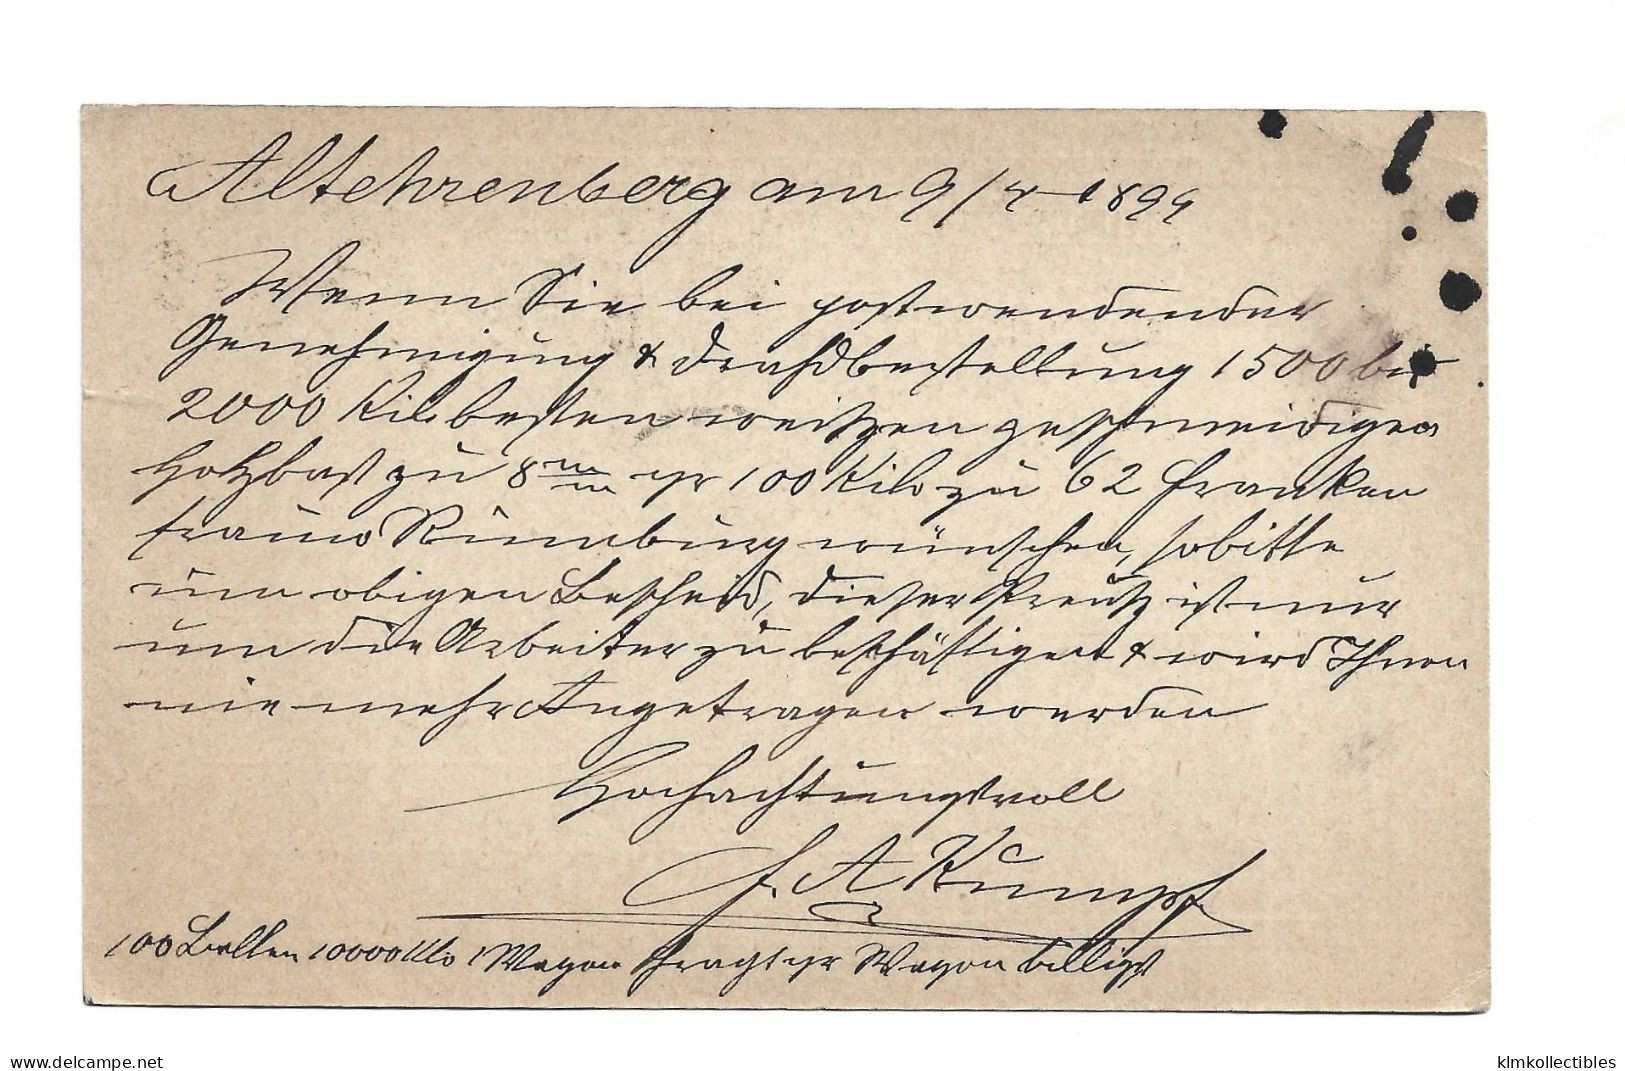 Altehrenberg am 9/4 1899
Wenn Sie bei postwendender
Genehmigung & Drahdbestellung 1500 bis
2000 Kilo besten weißen geschmeidigen
Holzbast zu 8 m/m pr 100 Kilo zu 62 Franken
franco Rumburg wünschen, so bitte
um obigen Bescheid, dieser Preuß ist nur
um die Arbeiter zu beschäftigen & wird Ihnen
nie mehr Angetragen werden
Hochachtungsvoll
J. A Kumpf
100 Ballen 10000 Klo 1 Wagon Fragt pr Wagon billigst
delcampe.net
klmkollectibles